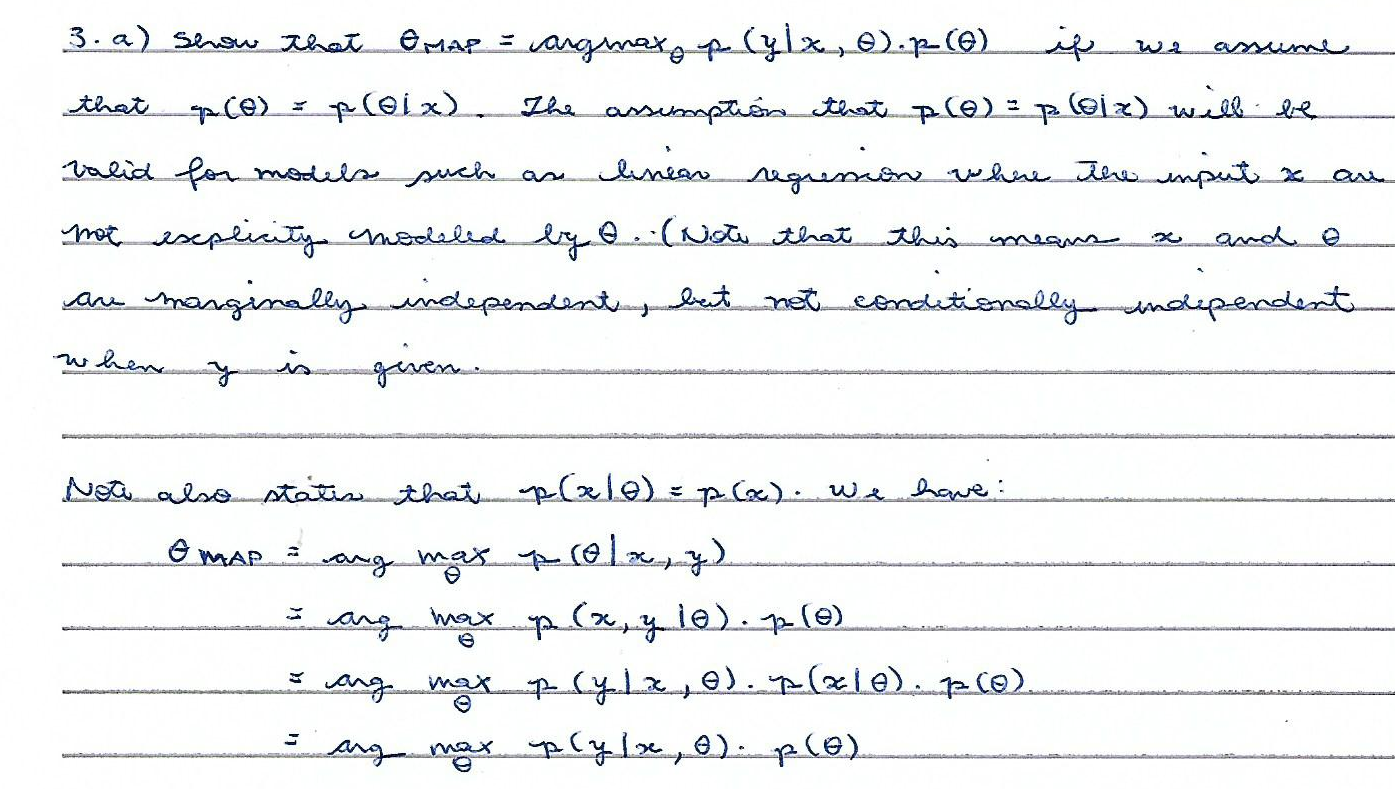 3. a) Show that θ MAP = argmax_θ p (y|x, θ). p(θ) if we assume
that p(θ) = p(θ|x). The assumption that p(θ) = p(θ|x) will be
valid for models such as linear regression where the input x are
not explicity modeled by θ. (Note that this means x and θ
are marginally independent, but not conditionally independent
when y is given.
Note also states that p(x|θ) = p(x). We have:
θ MAP = arg max_θ p(θ|x, y)
= arg max_θ p (x, y |θ). p(θ)
= arg max_θ p (y|x, θ). p(x|θ). p(θ)
= arg max_θ p(y|x, θ). p(θ)